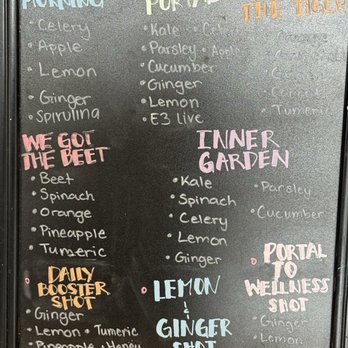 MORNING
• Celery
• Apple
• Lemon
• Ginger
• Spirulina
PORTAL
• Kale • Celery
• Parsley • Apple
• Cucumber
• Ginger
• Lemon
• E3 live
THE TIGER
Turmeric
WE GOT
THE BEET
• Beet
• Spinach
• Orange
• Pineapple
• Turmeric
INNER
GARDEN
• Kale
• Spinach
• Celery
• Lemon
• Ginger
• Parsley
• Cucumber
• DAILY
BOOSTER
SHOT
• Ginger
• Lemon • Turmeric
• Pineapple • Honey
• LEMON
&
GINGER
SHOT
• PORTAL
TO
WELLNESS
SHOT
• Ginger
• Lemon